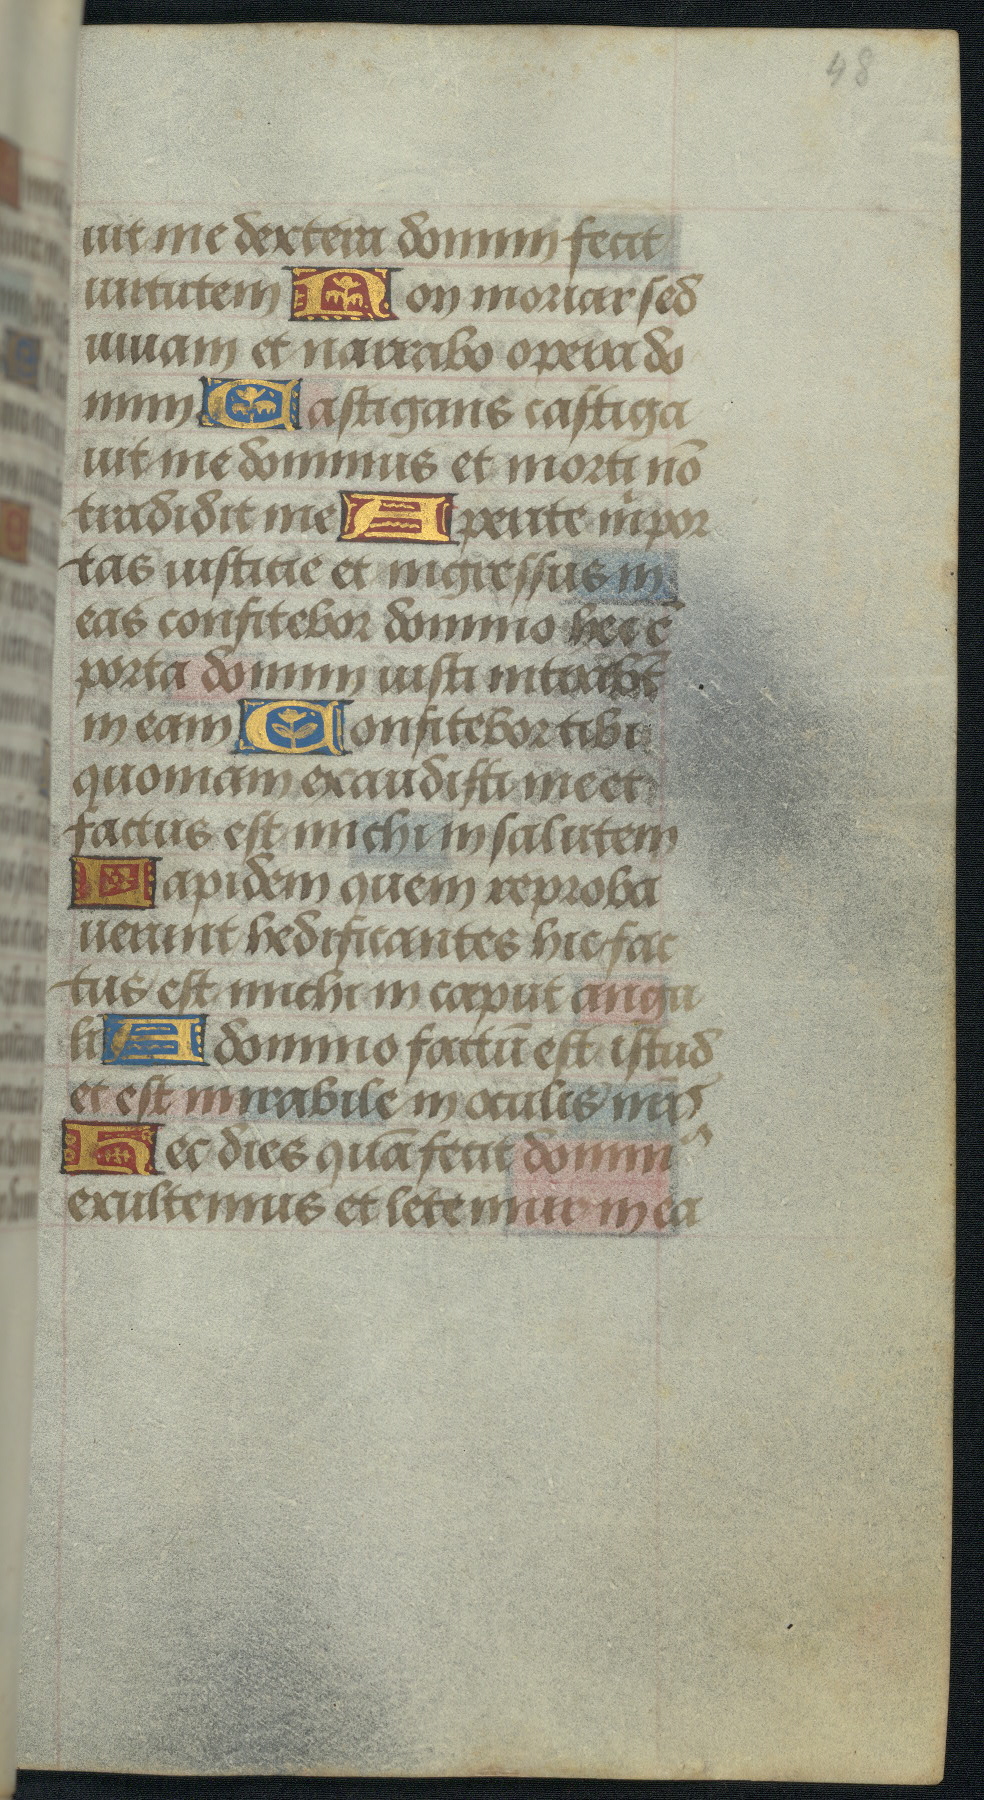 48
uit me dextera domini fecit
uirtutem Non moriar sed
uiuam et narrabo opera do
mini Castigans castiga
uit me dominus et morti nō
tradidit me Aperite m̍ por
tas iusticie et ingressus in
eas confitebor domino hec ē
porta domini iusti intrabūt
in eam Confitebor tibi
quoniam exaudisti me et
factus est michi in salutem
Lapidem quem reproba
uerunt hedificantes hic fac
tus est michi in caput angu
li A domino factū est istud
et est mirabile in oculis nr̄is
Hec dies quā fecit domin
exultemus et letemur in ea